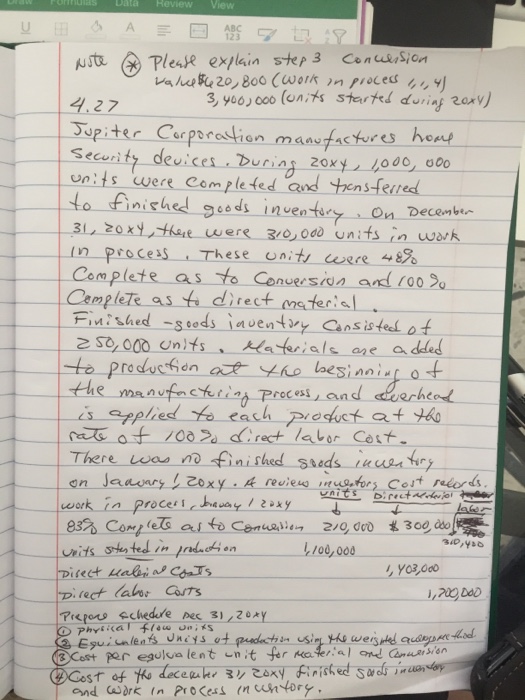 Formulas Data Review View
U A ABC 123
Note * Please explain step 3 Conversion
value $620,800 (work in process 1,1,4)
3,400,000 (units started during 20x4)
4.27
Jupiter Corporation manufactures home
Security devices. During 20x4, 1,000,000
units were completed and transferred
to finished goods inventory. On December
31, 20x4, there were 310,000 units in work
in process. These units were 48%
Complete as to Conversion and 100%
Complete as to direct material.
Finished-goods inventory Consisted of
250,000 units. Materials are added
to production at the beginning of
the manufacturing process, and overhead
is applied to each product at the
rate of 100% direct labor cost.
There was no finished goods inventory
on January 1 20x4. A review inventory Cost records.
units Direct Material labor
work in process, January 1 20x4
83% Complete as to Conversion 210,000 $300,000 310,420
units started in production 1,100,000
Direct Material Costs 1,403,000
Direct labor Costs 1,700,000
Prepare schedule Dec 31, 20x4
① Physical flow units
② Equivalents Units of production using the weighted average method.
③ Cost per equivalent unit for material and Conversion
④ Cost of the december 31, 20x4 finished goods inventory
and work in process inventory.